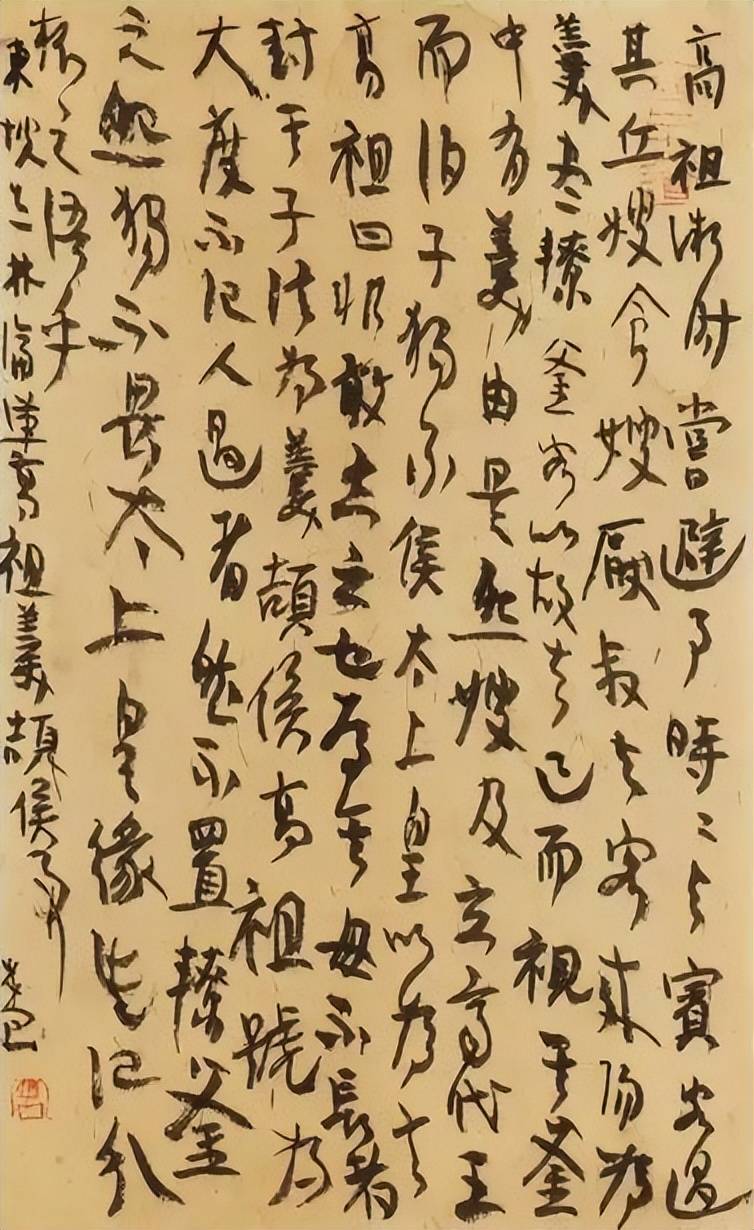 高祖微时嘗避事時々与賓客過
其丘嫂食嫂厭叔与客来陽为
羹尽轑釜客以故去已而視其釜
中有羹由是怨嫂及立齊代王
而伯子独不侯太上皇以为言
高祖曰非敢忘之也为其母不長者
封其子信为羹頡侯高祖號为
大度不记人過者然不置轑釜
之怨独不畏太上皇緣此记分
杯之语乎
東坡志林論漢高祖羹頡侯事